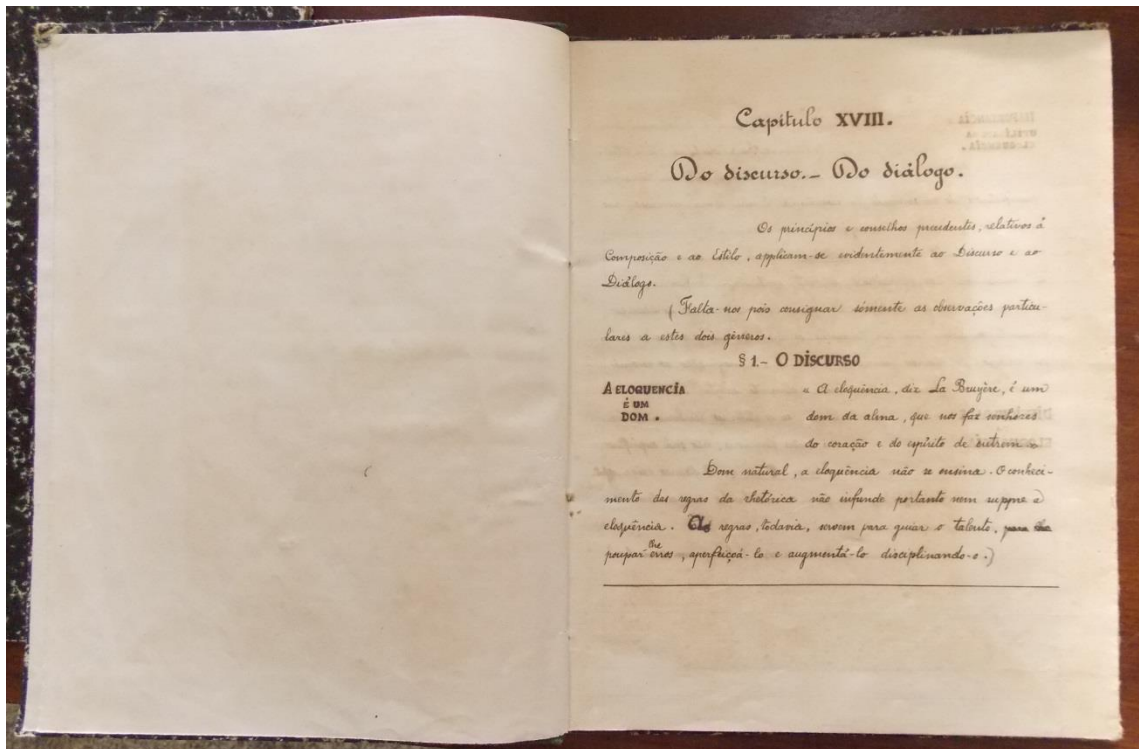 Capítulo XVIII.
Do discurso. - Do diálogo.
Os princípios e conselhos precedentes, relativos á
Composição e ao Estilo, applicam-se evidentemente ao Discurso e ao
Diálogo.
(Falta-nos pois consignar sómente as observações particu-
lares a estes dois géneros.
§ 1. - O DISCURSO
A ELOQUENCÍA
É UM
DOM.
« A eloquéncia, diz La Bruyère, é um
dom da alma, que nos faz senhores
do coração e do espírito de outrem »
Dom natural, a eloquência não se ensina. O conheci-
mento das regras da rhetórica não infunde portanto nem suppre a
eloquência. As regras, todavia, servem para guiar o talento, para lhe
poupar lhe erros, aperfeiçoá-lo e augmentá-lo disciplinando-o.)